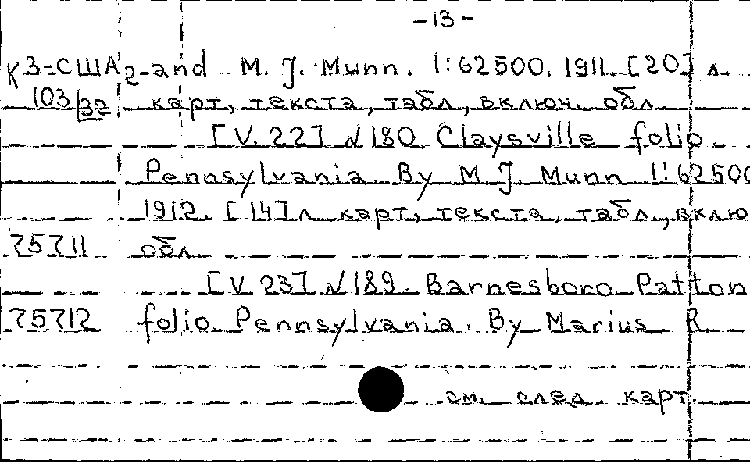 -13-
К3-США2-and M. J. Munn. 1:62500. 1911. [20] л.
103/32 карт, текста, табл, включ. обл.
[V. 22] №180 Claysville folio.
Pennsylvania. By M. J. Munn 1:62500
1912. [14] л карт, текста, табл., вклю
75711 обл.
[V 23] №189. Barnesboro Patton
75712 folio. Pennsylvania. By Marius R
см. след. карт.